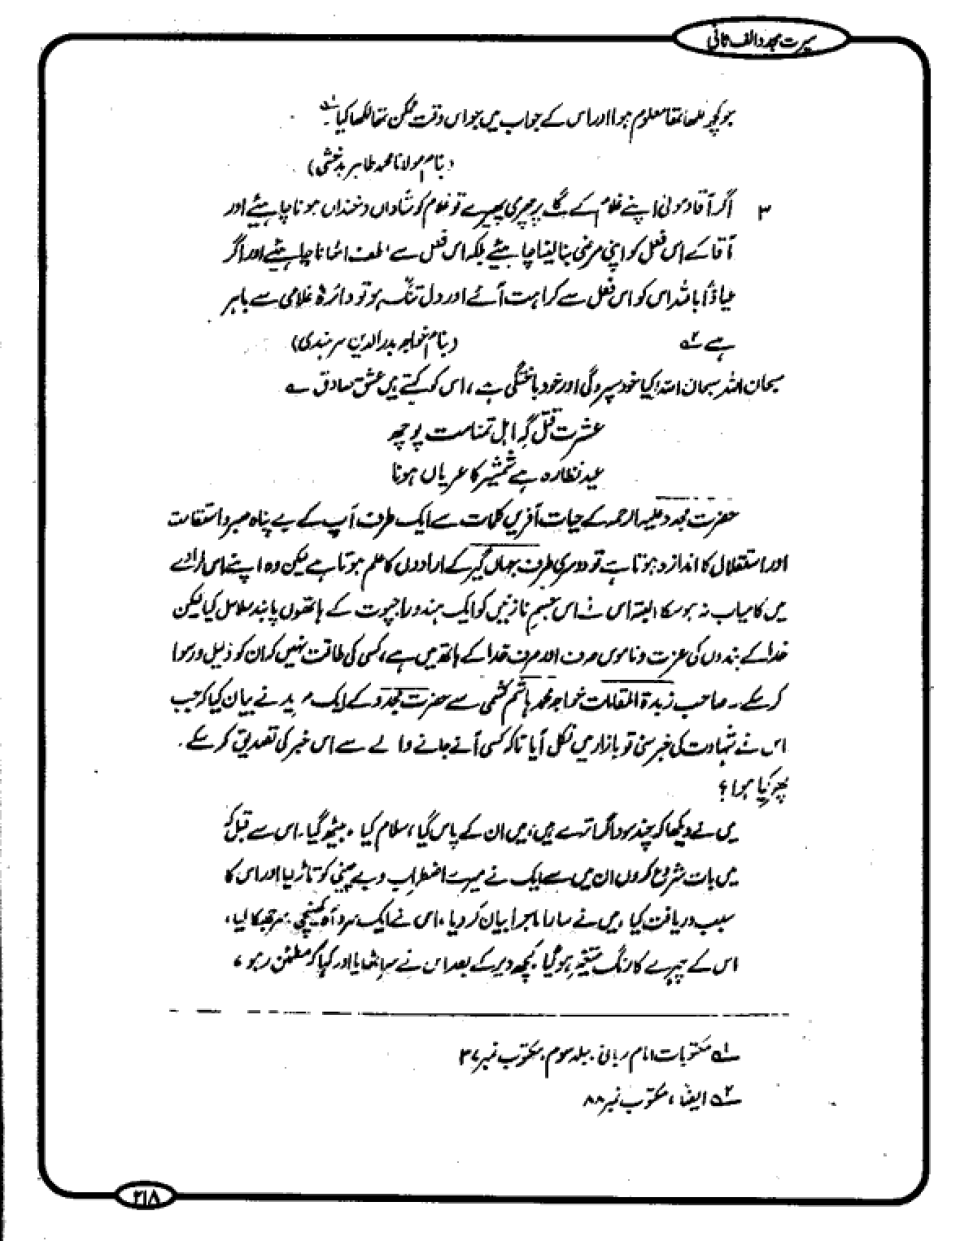 سیرت مجدد الف ثانی
جو کچھ لکھا تھا معلوم ہوا اور اس کے جواب میں جو اس وقت ممکن تھا لکھا گیا ۱ھ
(بنام مولانا محمد طاہر بدخشی)
۳ اگر آقا و مولیٰ اپنے غلام کے گلے پر چھری پھیرے تو غلام کو شاداں و خنداں ہونا چاہیئے اور
آقا کے اس فعل کو اپنی مرضی بنا لینا چاہیئے بلکہ اس فعل سے لطف اٹھانا چاہیئے اور اگر
عیاذًا باللہ اس کو اس فعل سے کراہت آئے اور دل تنگ ہو تو دائرۂ غلامی سے باہر
ہے ۲ھ (بنام خواجہ بدر الدین سرہندی)
سبحان اللہ سبحان اللہ! کیا خود سپردگی اور خود باختگی ہے، اس کو کہتے ہیں عشق صادق ے
عشرت قتل گہ اہل تمنا مت پوچھ
عید نظارہ ہے شمشیر کا عریاں ہونا
حضرت مجدد علیہ الرحمہ کے حیات آفریں کلمات سے ایک طرف آپ کے بے پناہ صبر و استقامت
اور استقلال کا اندازہ ہوتا ہے تو دوسری طرف جہاں گیر کے ارادوں کا علم ہوتا ہے لیکن وہ اپنے اس ارادے
میں کامیاب نہ ہو سکا البتہ اس نے اس جسم نازنیں کو ایک ہندو راجپوت کے ہاتھوں پابند سلاسل کیا لیکن
خدا کے بندوں کی عزت و ناموس صرف اور صرف خدا کے ہاتھ میں ہے، کسی کی طاقت نہیں کہ ان کو ذلیل و رسوا
کر سکے۔ صاحب زبدۃ المقامات خواجہ محمد ہاشم کشمی سے حضرت مجدد کے ایک مرید نے بیان کیا کہ جب
اس نے شہادت کی خبر سنی تو بازار میں نکل آیا تاکہ کسی آنے جانے والے سے اس خبر کی تصدیق کر سکے۔
پھر کیا ہوا؟
میں نے دیکھا کہ چند سوداگر اترے ہیں، میں ان کے پاس گیا، سلام کیا، بیٹھ گیا۔ اس سے قبل کہ
میں بات شروع کروں ان میں سے ایک نے میرے اضطراب و بے چینی کو تاڑ لیا اور اس کا
سبب دریافت کیا، میں نے سارا ماجرا بیان کر دیا، اس نے ایک سرد آہ کھینچی، سر جھکا لیا،
اس کے چہرے کا رنگ متغیر ہو گیا، کچھ دیر کے بعد اس نے سر اٹھایا اور کہا کہ مطمئن رہو،
۱ھ مکتوبات امام ربانی، جلد سوم، مکتوب نمبر ۳۷
۲ھ ایضًا، مکتوب نمبر ۸۸
۲۱۸